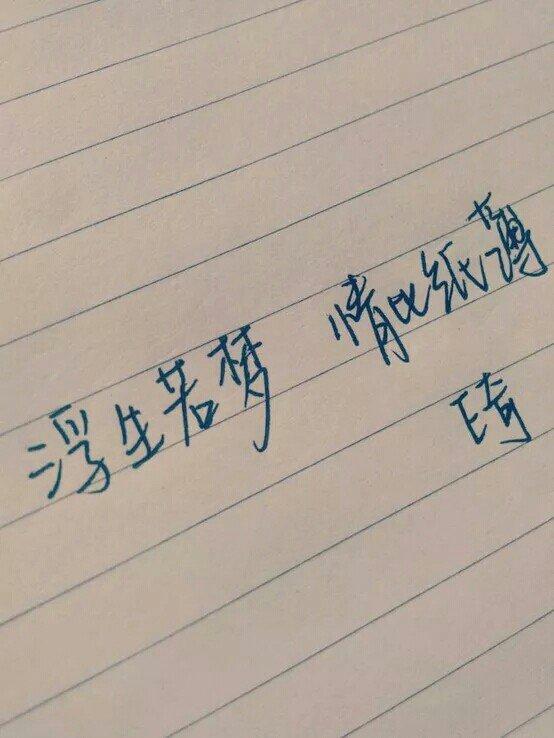 浮生若梦 情比纸薄
琦